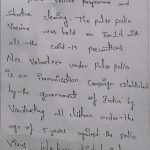 Polio Vaccine Programme and
cleaning - The pulse polio
Vaccine was held on
all the covid-19 precautions.
Nss Volunteer under Pulse polio
is an immunisation Campaign established
by the government of India by
Vaccinating all children under the
age of 5 years against the polio
Virus